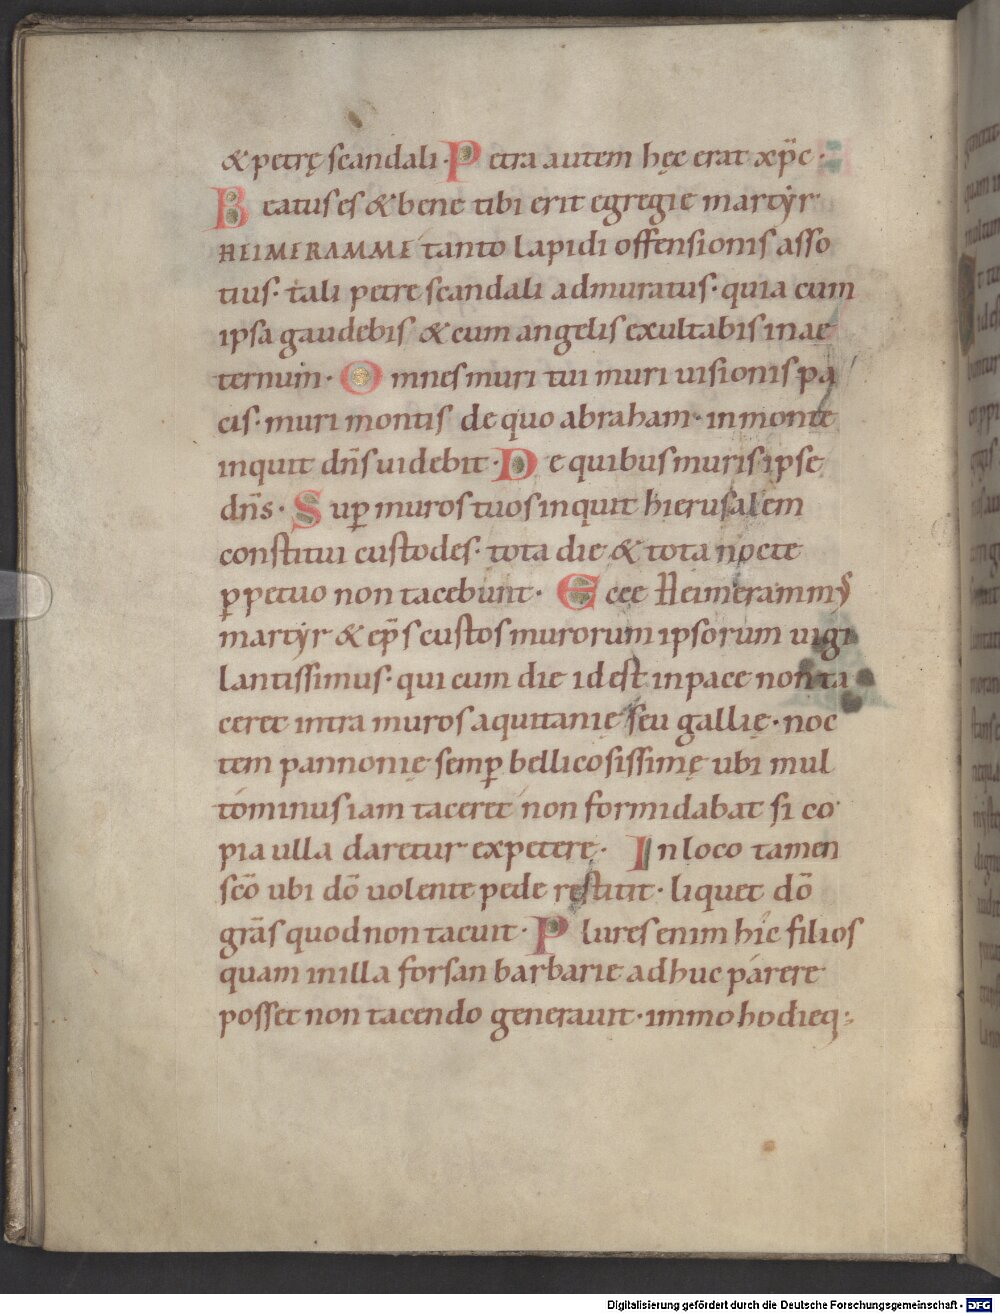 & petrę scandali · Petra autem hęc erat xp̄c ·
Beatus es & bene tibi erit egregie martyr
HEIMERAMME tanto lapidi offensionis asso
tius · tali petre scandali admuratus · quia cum
ipsa gaudebis & cum angelis exultabis in ae
ternum · Omnes muri tui muri uisionis pa
cis · muri montis de quo abraham · in monte
inquit dn̄s uidebit · De quibus muris ipse
dn̄s · Sup̄ muros tuos inquit hierusalem
constitui custodes · tota die & tota nocte
ꝑpetuo non tacebunt · Ecce Heimerammꝰ
martyr & ep̄s custos murorum ipsorum uigi
lantissimus · qui cum die id est in pace non ta
ceret intra muros aquitanię seu gallię · noc
tem pannonię semꝑ bellicosissimę ubi mul
tóminus iam taceret non formidabat si co
pia ulla daretur expetere · In loco tamen
sc̄o ubi dō uolente pede restitit · liquet dō
grās quod non tacuit · Plures enim hic filios
quam in illa forsan barbarie adhuc párere
posset non tacendo generauit · immo hodieq;
Digitalisierung gefördert durch die Deutsche Forschungsgemeinschaft - DFG